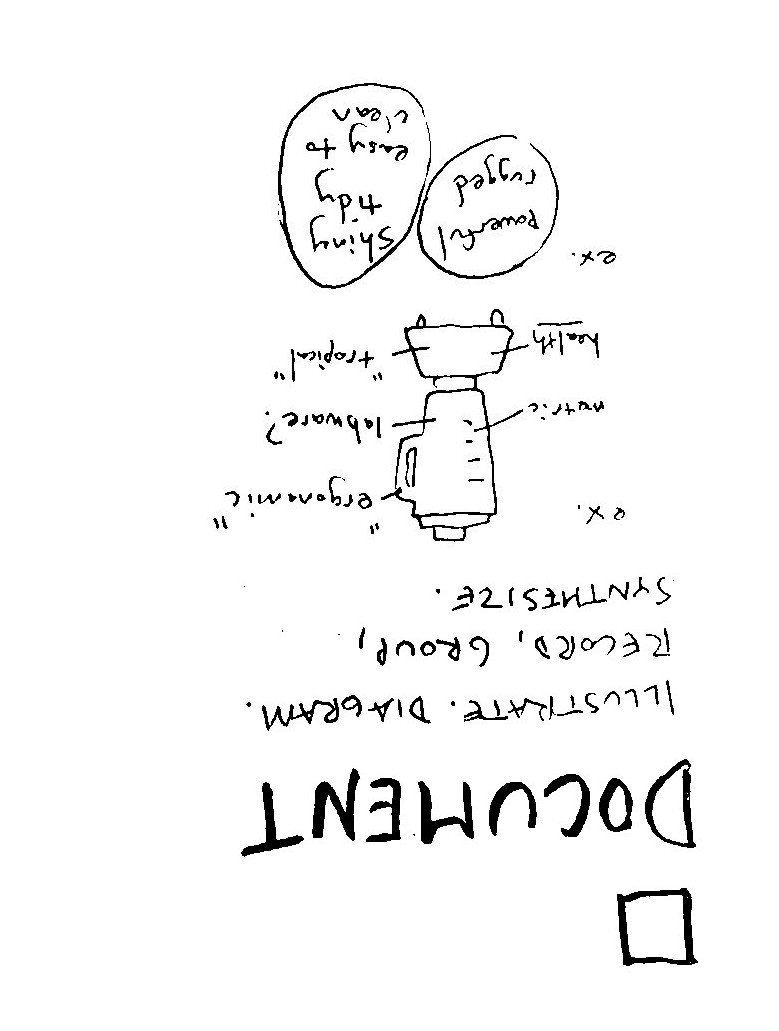 DOCUMENT
ILLUSTRATE. DIAGRAM.
RECORD, GROUP,
SYNTHESIZE.
ex.
"ergonomic"
metric
labware?
health
"tropical"
ex.
powerful
rugged
shiny
tidy
easy to
clean